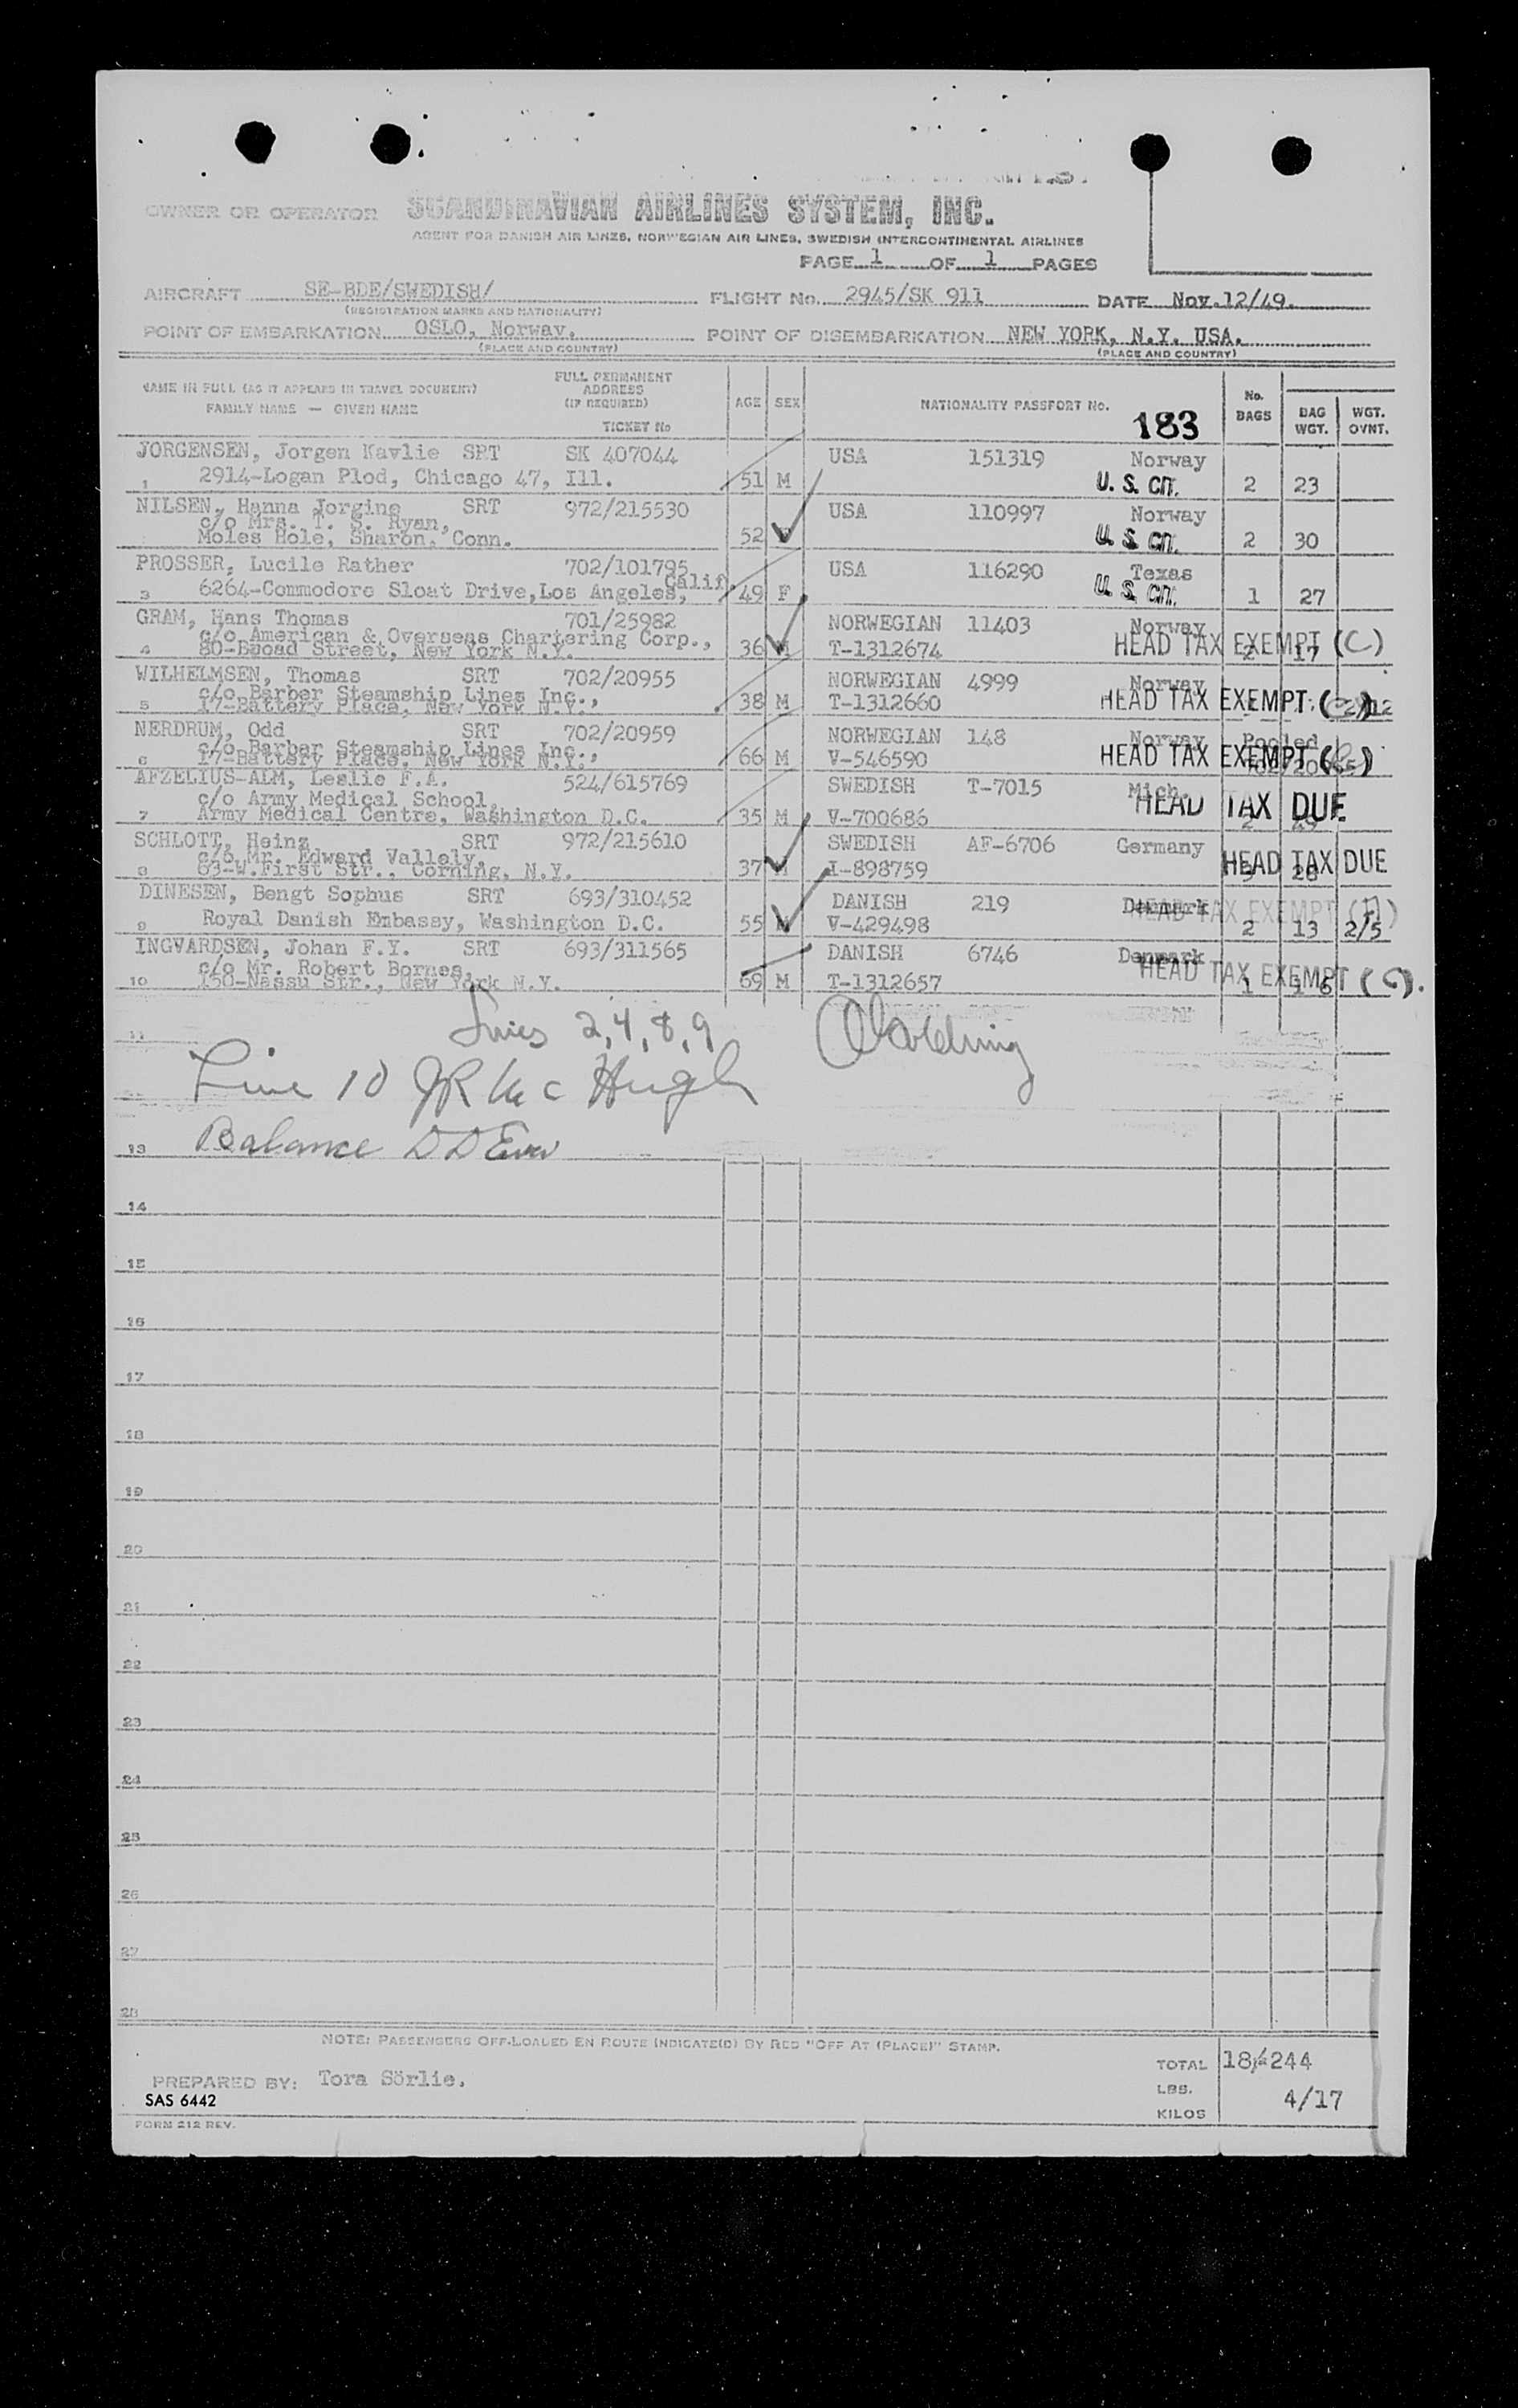 OWNER OR OPERATOR SCANDINAVIAN AIRLINES SYSTEM, INC.
AGENT FOR DANISH AIR LINES, NORWEGIAN AIR LINES, SWEDISH INTERCONTINENTAL AIRLINES
PAGE 1 OF 1 PAGES
AIRCRAFT SE-BDE/SWEDISH/ FLIGHT No. 2945/SK 911 DATE Nov.12/49.
(REGISTRATION MARKS AND NATIONALITY)
POINT OF EMBARKATION OSLO, Norway. POINT OF DISEMBARKATION NEW YORK, N.Y. USA.
(PLACE AND COUNTRY) (PLACE AND COUNTRY)
NAME IN FULL (AS IT APPEARS IN TRAVEL DOCUMENT)
FAMILY NAME — GIVEN NAME
FULL PERMANENT
ADDRESS
(IF REQUIRED)
TICKET No
AGE SEX NATIONALITY PASSPORT No. 183 No. BAGS BAG WGT. WGT. OVNT.
JORGENSEN, Jorgen Kavlie SRT SK 407044 USA 151319 Norway
1 2914-Logan Plod, Chicago 47, Ill. 51 M U. S. CIT. 2 23
NILSEN, Hanna Jorgine SRT 972/215530 USA 110997 Norway
c/o Mrs. T. S. Ryan,
Moles Hole, Sharon, Conn. 52 U. S. CIT. 2 30
PROSSER, Lucile Rather 702/101795 USA 116290 Texas
3 6264-Commodore Sloat Drive,Los Angeles, Calif. 49 F U. S. CIT. 1 27
GRAM, Hans Thomas 701/25982 NORWEGIAN 11403 Norway
c/o American & Overseas Chartering Corp.,
4 80-Broad Street, New York N.Y. 36 M T-1312674 HEAD TAX EXEMPT (C) 2 17
WILHELMSEN, Thomas SRT 702/20955 NORWEGIAN 4999 Norway
c/o Barber Steamship Lines Inc.,
5 17-Battery Place, New York N.Y. 38 M T-1312660 HEAD TAX EXEMPT
NERDRUM, Odd SRT 702/20959 NORWEGIAN 148 Norway Pooled
c/o Barber Steamship Lines Inc.,
6 17-Battery Place, New York N.Y. 66 M V-546590 HEAD TAX EXEMPT
AFZELIUS-ALM, Leslie F.A. 524/615769 SWEDISH T-7015 Mich.
c/o Army Medical School,
7 Army Medical Centre, Washington D.C. 35 M V-700686 HEAD TAX DUE
SCHLOTT, Heinz SRT 972/215610 SWEDISH AF-6706 Germany
c/o Mr. Edward Vallely,
8 63-W.First Str., Corning, N.Y. 37 M I-898759 HEAD TAX DUE
DINESEN, Bengt Sophus SRT 693/310452 DANISH 219 Denmark
9 Royal Danish Embassy, Washington D.C. 55 M V-429498 HEAD TAX EXEMPT (A) 2 13 2/5
INGVARDSEN, Johan F.Y. SRT 693/311565 DANISH 6746 Denmark
c/o Mr. Robert Bornes,
10 150-Nassu Str., New York N.Y. 69 M T-1312657 HEAD TAX EXEMPT (C). 1 16
11 Lines 2,4,8,9
Line 10 JR McHugh
13 Balance
14
15
16
17
18
19
20
21
22
23
24
25
26
27
28
NOTE: PASSENGERS OFF-LOADED EN ROUTE INDICATE(D) BY RED "OFF AT (PLACE)" STAMP.
PREPARED BY: Tora Sörlie. TOTAL 18 244
SAS 6442 LBS.
KILOS 4/17
FORM 212 REV.